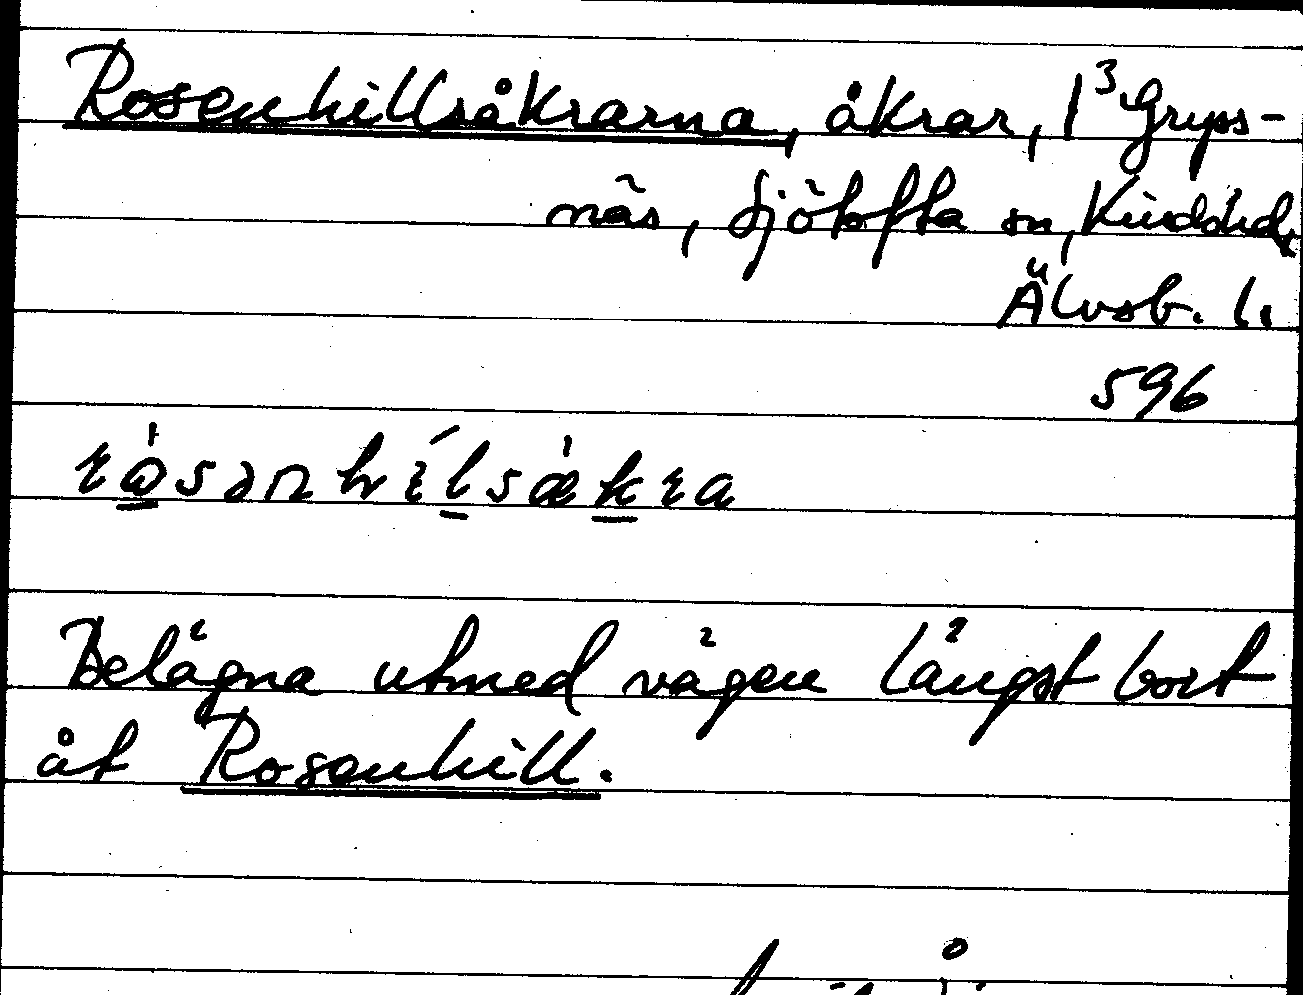 Rosenhillsåkrarna, åkrar, 1³ Gryss-
näs, Sjötofta sn, Kinds hd,
Älvsb. l.
596
Belägna utmed vägen längst bort
åt Rosenhill.